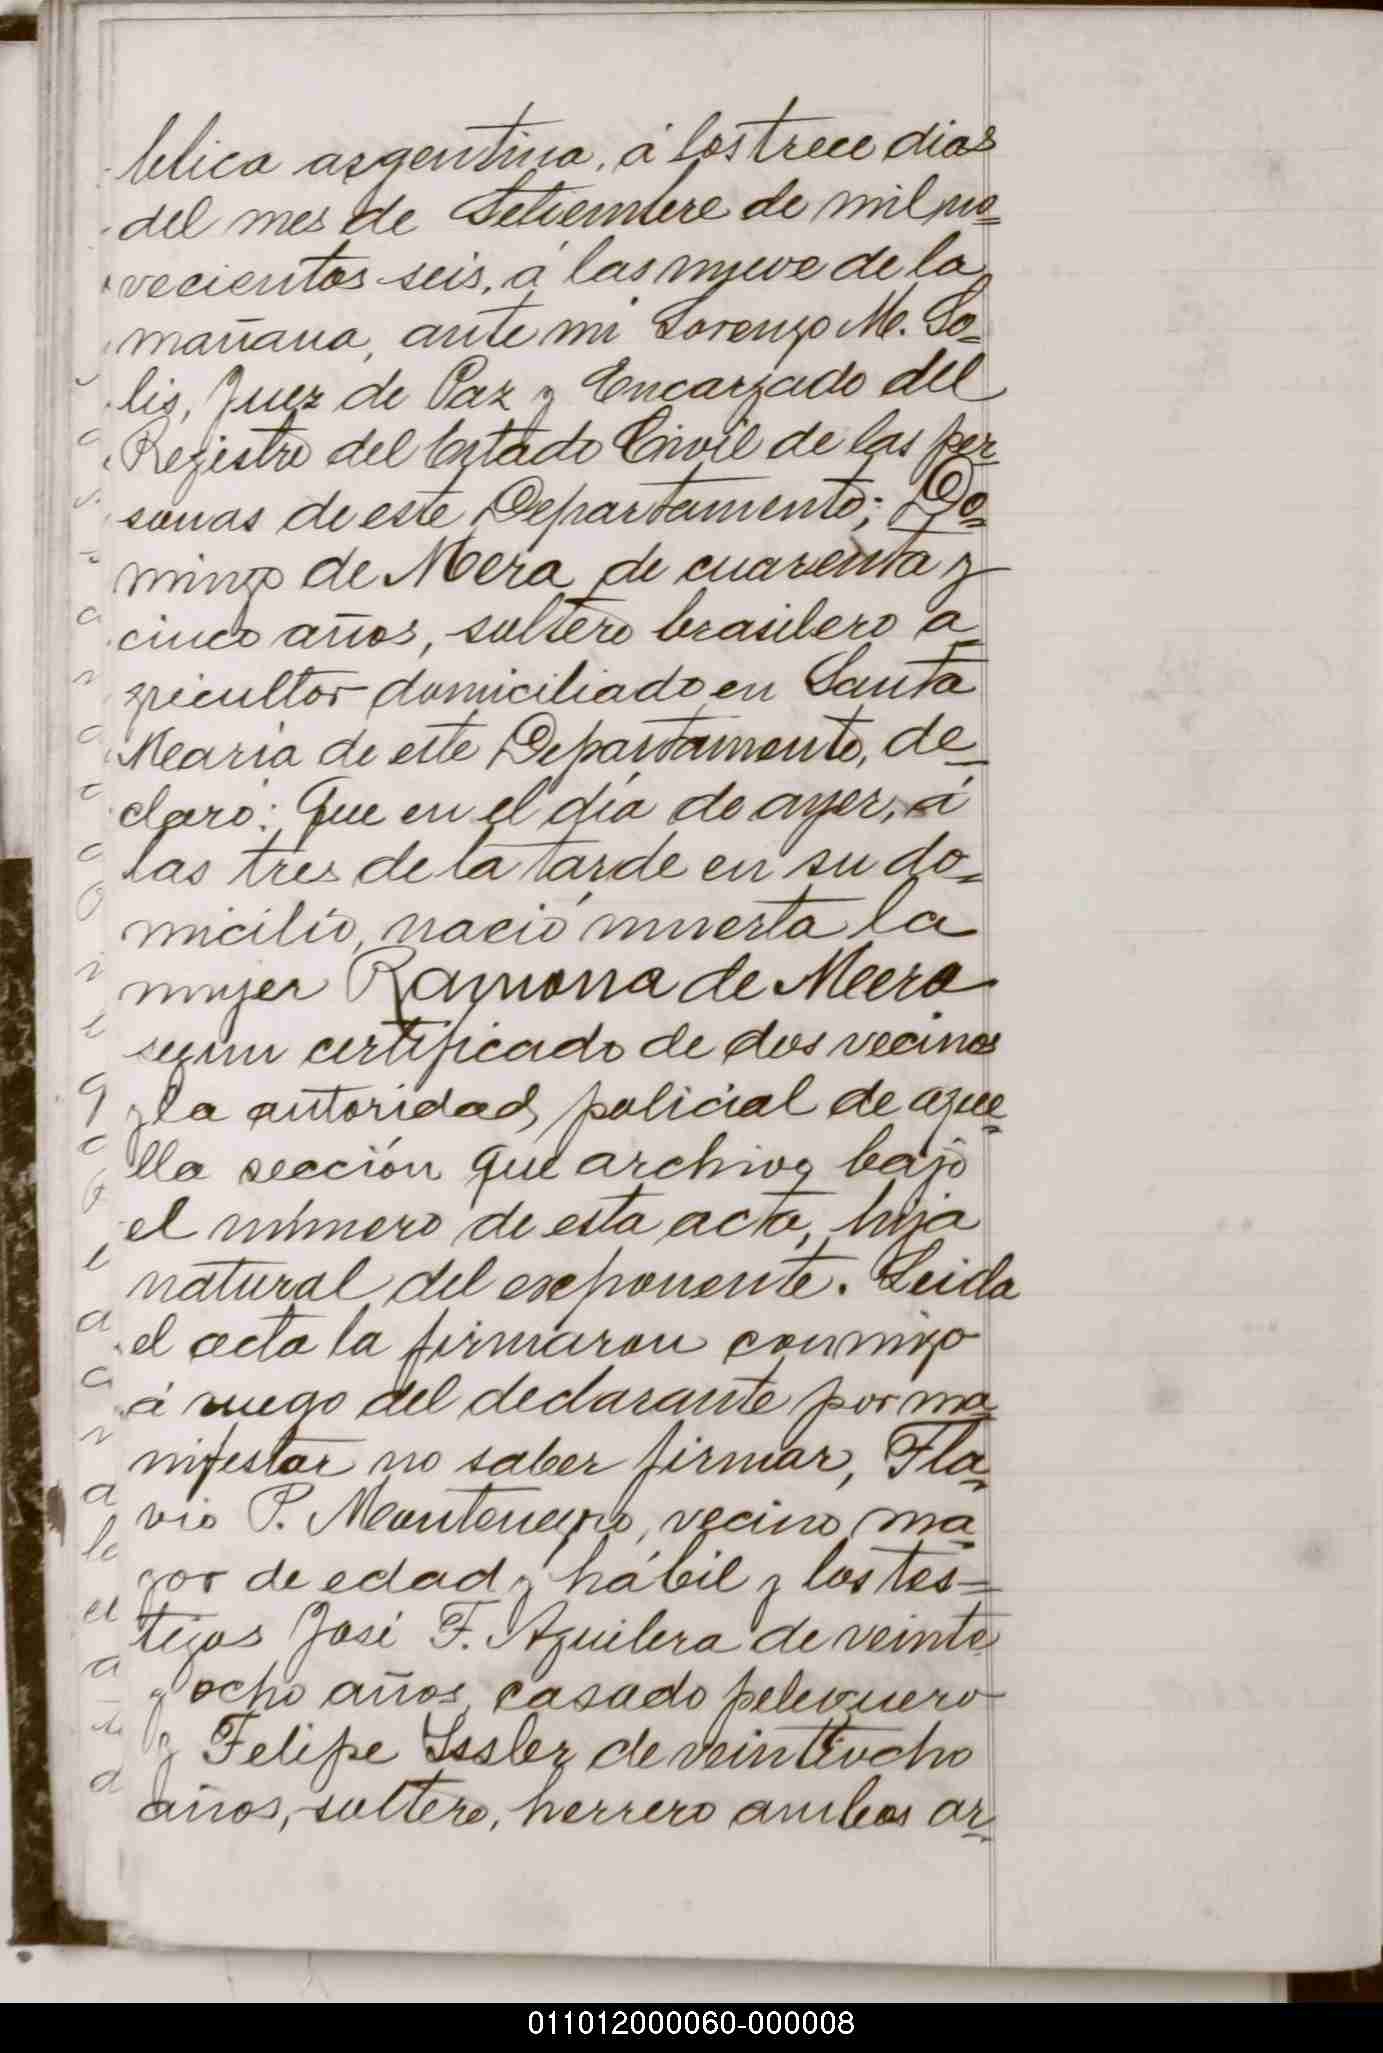 blica argentina, á los trece dias
del mes de Setiembre de mil no=
vecientos seis, á las nueve de la
mañana, ante mi Lorenzo M. So=
lis, Juez de Paz y Encargado del
Registro del Estado Civil de las per
sonas de este Departamento; Do=
mingo de Mera de cuarenta y
cinco años, soltero brasilero a
gricultor domiciliado en Santa
Maria de este Departamento, de=
claró: Que en el día de ayer, á
las tres de la tarde en su do=
micilio, nació muerta la
mujer Ramona de Mera
segun certificado de dos vecinos
y la autoridad policial de aque=
lla sección que archivo bajo
el número de esta acta, hija
natural del exponente. Leida
el acta la firmaron conmigo
á ruego del declarante por ma
nifestar no saber firmar, Fla=
vio P. Montenegro, vecino ma
yor de edad y hábil y los tes=
tigos José F. Aguilera de veinte
y ocho años, casado peluquero
y Felipe Issler de veintiocho
años, soltero, herrero ambos ar=
011012000060-000008